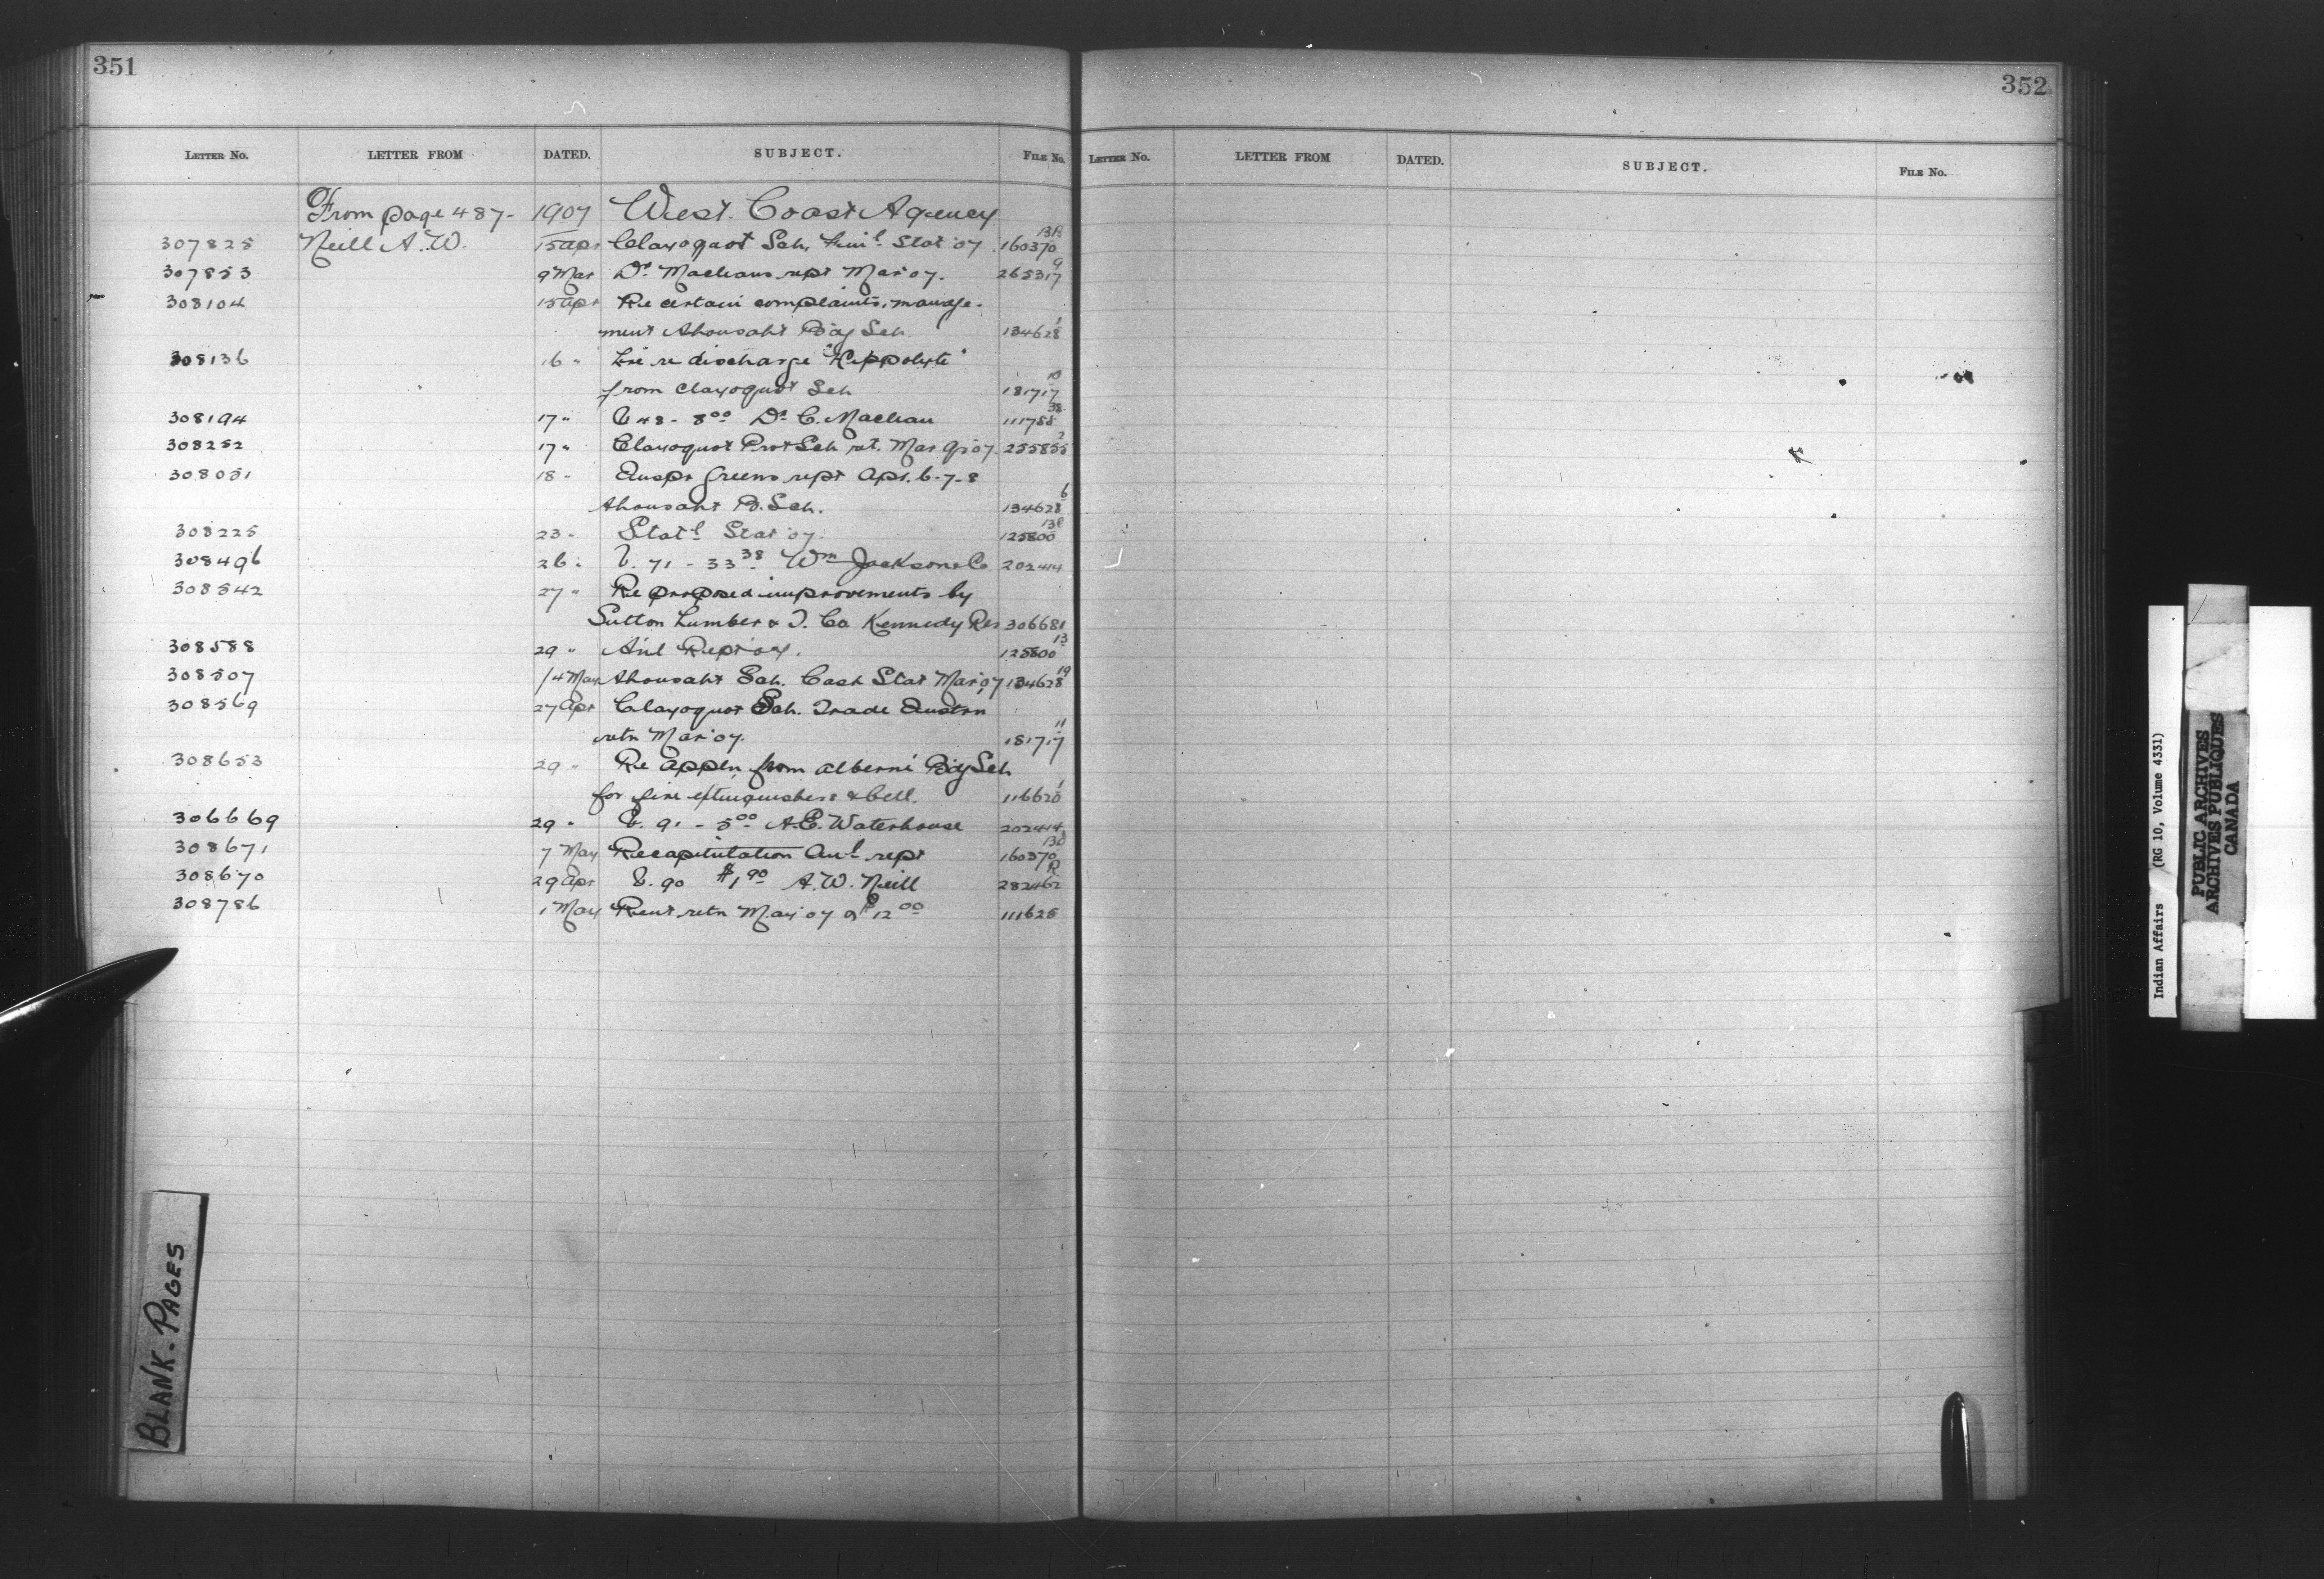 351
LETTER NO. LETTER FROM DATED. SUBJECT. FILE NO.
From page 487- 1907 West Coast Agency
307825 Neill A. W. 15 Apr Clayoquot Sch. Stat '07 160370 13B
307853 9 Mar Dr. Macleans rept Mar '07. 265317 9
308104 15 Apr Re certain complaints, manage-
ment Ahousaht Bdg Sch. 134628 1
308136 16 " re discharge "Hippolyte"
from Clayoquot Sch 181717 10
308194 17 " V 48 - 8 00 Dr. C. Maclean 111788 38
308252 17 " Clayoquot Prot Sch rt. Mar Qr 07. 255855 2
308051 18 - Inspr Greens rept Apr. 6-7-8
Ahousaht B. Sch. 134628 6
308225 23 " Stat'l Stat '07. 125800
308496 26 " V. 71 - 33 38 Wm Jackson & Co. 202414
308542 27 " Re proposed improvements by
Sutton Lumber & T. Co. Kennedy Res 306681
308588 29 " An'l Rept '07. 125800 13
308507 14 May Ahousaht Sch. Cash Stat Mar '07 134628 19
308569 27 Apr Clayoquot Sch. Trade Instrn
retn Mar '07. 181717 11
308653 29 " Re appln from Alberni Bdg Sch
for fire extinguishers & bell. 116620 1
306669 29 " V. 91 - 5 00 A.E. Waterhouse 202414
308671 7 May Recapitulation An'l rept 160370
308670 29 Apr V. 90 $1 90 A. W. Neill 282462 R
308786 1 May Rent retn May '07 of $12 00 111625
BLANK-PAGES
352
LETTER NO. LETTER FROM DATED. SUBJECT. FILE NO.
Indian Affairs (RG 10, Volume 4331)
PUBLIC ARCHIVES
ARCHIVES PUBLIQUES
CANADA